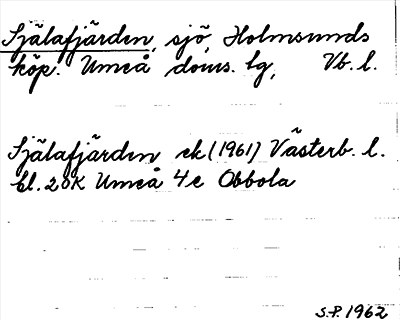 Själafjärden, sjö, Holmsunds
köp. Umeå doms. lg, Vb. l.
Själafjärden ek (1961) Västerb. l.
bl. 20K Umeå 4e Obbola
S.P. 1962